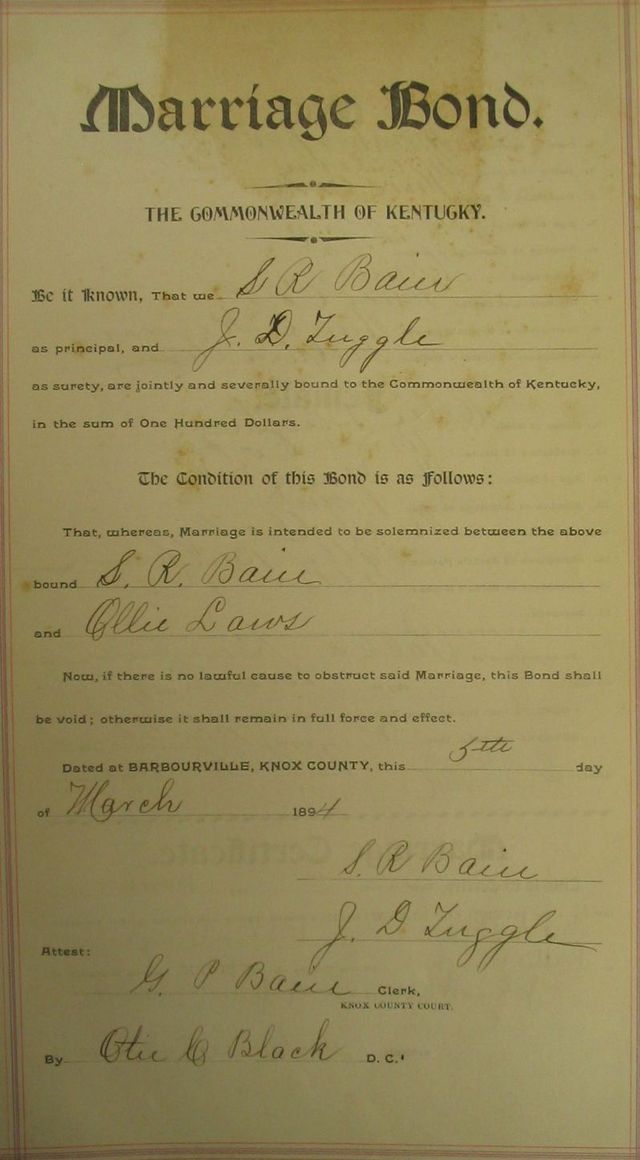 Marriage Bond.
THE COMMONWEALTH OF KENTUCKY.
Be it Known, That we S R Bain
as principal, and J. D. Tuggle
as surety, are jointly and severally bound to the Commonwealth of Kentucky,
in the sum of One Hundred Dollars.
The Condition of this Bond is as Follows:
That, whereas, Marriage is intended to be solemnized between the above
bound S. R. Bain
and Ollie Laws
Now, if there is no lawful cause to obstruct said Marriage, this Bond shall
be void; otherwise it shall remain in full force and effect.
Dated at BARBOURVILLE, KNOX COUNTY, this 5th day
of March 1894
S. R Bain
J. D Tuggle
Attest:
G. P Bain Clerk,
KNOX COUNTY COURT.
By Black D. C.